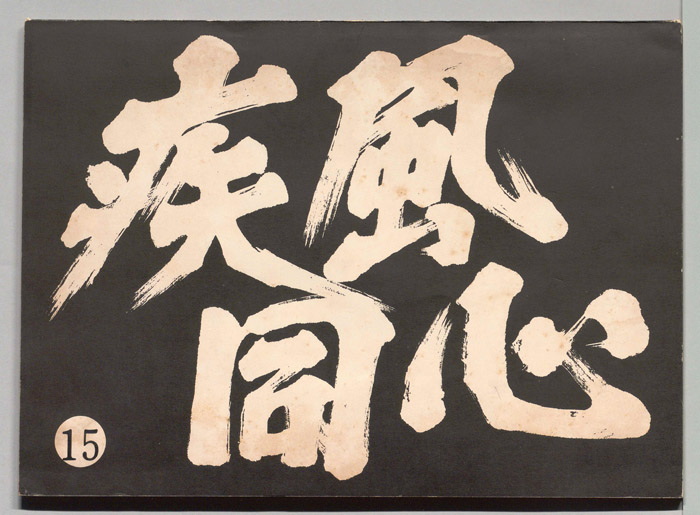 疾風
同心
15